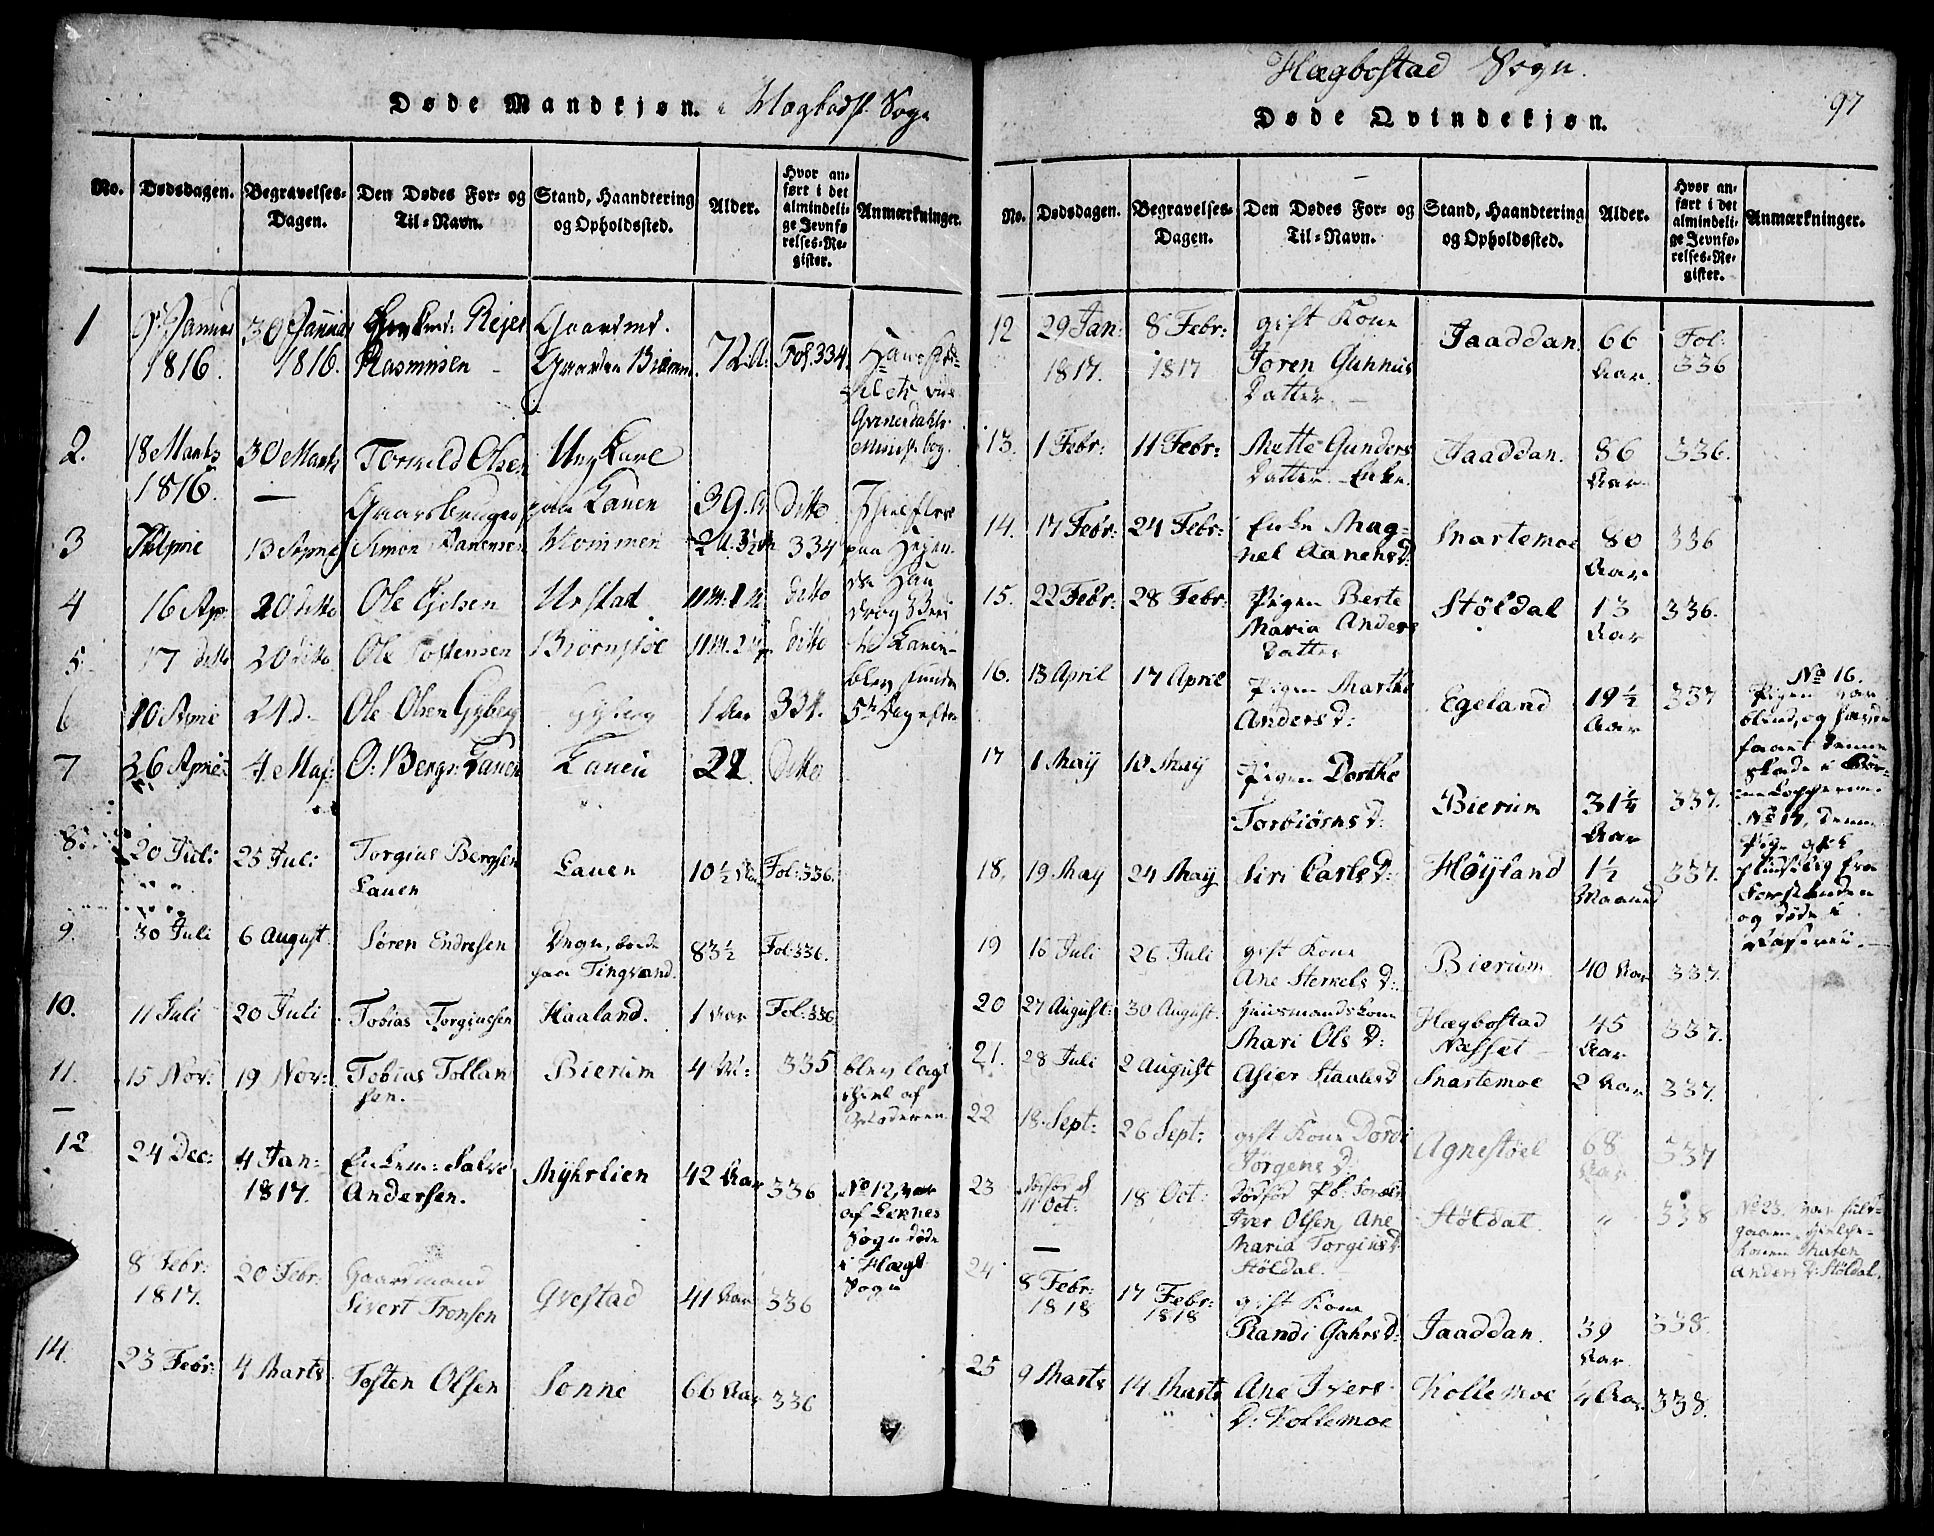 Døde Mandkjøn. Sogn
No.
Dødsdagen.
Begravelses-
Dagen.
Den Dødes For- og
Til-Navn.
Stand, Haandtering
og Opholdssted.
Alder.
Hvor an-
ført i det
almindeli-
ge Jevnfø-
relses-Re-
gister.
Anmærkninger.
1
1816.
30 Januar
1816.
Rejer
Rasmusen
Gaardmd.
72 A.
Fol. 334.
2.
18 Marts
1816.
30 Marts
Olsen
paa Lauen
39
ditto
3
13 Apriil
Simon Aanensen
334
4
16 Apr:
20 ditto
Ole
Urstad
ditto
5
17 ditto
20 ditto
Ole Tostensen
Biørnstøl
ditto
6
10 Apriil
24 d.
Ole Olsen Gyberg
Gyberg
1 Aar
334.
7
26 Apriil
4 Maj:
O: Bergs: Lauen
Lauen
ditto
8
20 Juli
25 Juli
Torgius Bergsen
Lauen
Lauen
10½ Aar
Fol: 336.
9.
30 Juli
6 August.
Søren Endresen
Degn,
paa Tingvand.
83½
Fol: 336.
10.
11 Juli
20 Juli
Tobias Torgiussen
Haaland.
1 Aar
Fol: 336.
11.
15 Nov:
19 Nov:
Tobias Tollan
sen.
Bierum
335
blev lagt
ihiel af
Moderen.
12
24 Dec:
4 Jan:
1817.
Enkem: Salve
Andersen.
Myhrlien
42 Aar
336
No 12, var
af Løknes
Sogn døde
i Hægb.
Sogn
8 Febr:
1817.
20 Febr:
Gaardmand
Sivert Tronsen
Gvestad
41 Aar
336
14.
23 Febr:
4 Marts
Tosten Olsen
Sonne
66 Aar
336
Hægbostad Sogn.
97
Døde Qvindekjøn.
No.
Dødsdagen.
Begravelses-
Dagen.
Den Dødes For- og
Til-Navn.
Stand, Haandtering
og Opholdssted.
Alder.
Hvor an-
ført i det
almindeli-
ge Jevnfø-
relses-Re-
gister.
Anmærkninger.
12
29 Jan:
1817.
8 Febr:
1817
gift Kone
Joren Gunnus
Datter
Jaaddan.
66
Aar.
Fol:
336
13.
1 Febr:
11 Febr:
Mette Gunders
Datter. Enke.
Jaaddan.
86
Aar
336.
14.
17 Febr:
24 Febr:
Enke Mag-
nel Aanensd:
Snartemoe
80
Aar
336
15.
22 Febr:
28 Febr:
Pigen Berte
Maria Anders
Datter
Støldal
13
Aar
336.
16.
13 April
17 April
Pigen Marthe
Anders D:
Egeland
19½
Aar
337
No 16.
Pigen var
blind, og havde
faaet denne
Skade i Bør-
nekopperne.
17
1 May
10 May
Pigen Dorthe
Torbiørns D:
Bierum
31¼
Aar
337.
No 17, denne
Pige gik
pludselig fra
Forstanden
og døde i
Raseri.
18.
19 May
24 May
Siri Carls D:
Høyland
1½
Maaned
337.
19
16 Juli
26 Juli
gift Kone
Ane Sterkels D:
Bierum
40 Aar
337.
20
27 August:
30 August.
Huusmands Kone
Mari Ols D:
Hægbostad
Næsset
45
Aar
337.
21.
28 Juli
2 August
Asier Staals D
Snartemoe
2 Aar
337.
22
18 Sept:
26 Sept:
gift Kone Dordi
Jørgens D:
Agnestøel
68
Aar
337
23
Dødfød d
11 Oct:
18 Oct:
dødfød
Iver Olsen, Ane
Maria Torgius D.
Støldal.
Støldal.
"
338
No 23. var fuld-
gaaen,
Konen Maren
Anders D: Støldal.
24
8 Febr:
1818
17 Febr:
1818
gift Kone
Randi Gahrs D:
Jaaddan.
39
Aar.
338.
25
9 Marts
14 Marts
Ane Ivers
D: Kollemoe
Kollemoe
4 Aar
338.